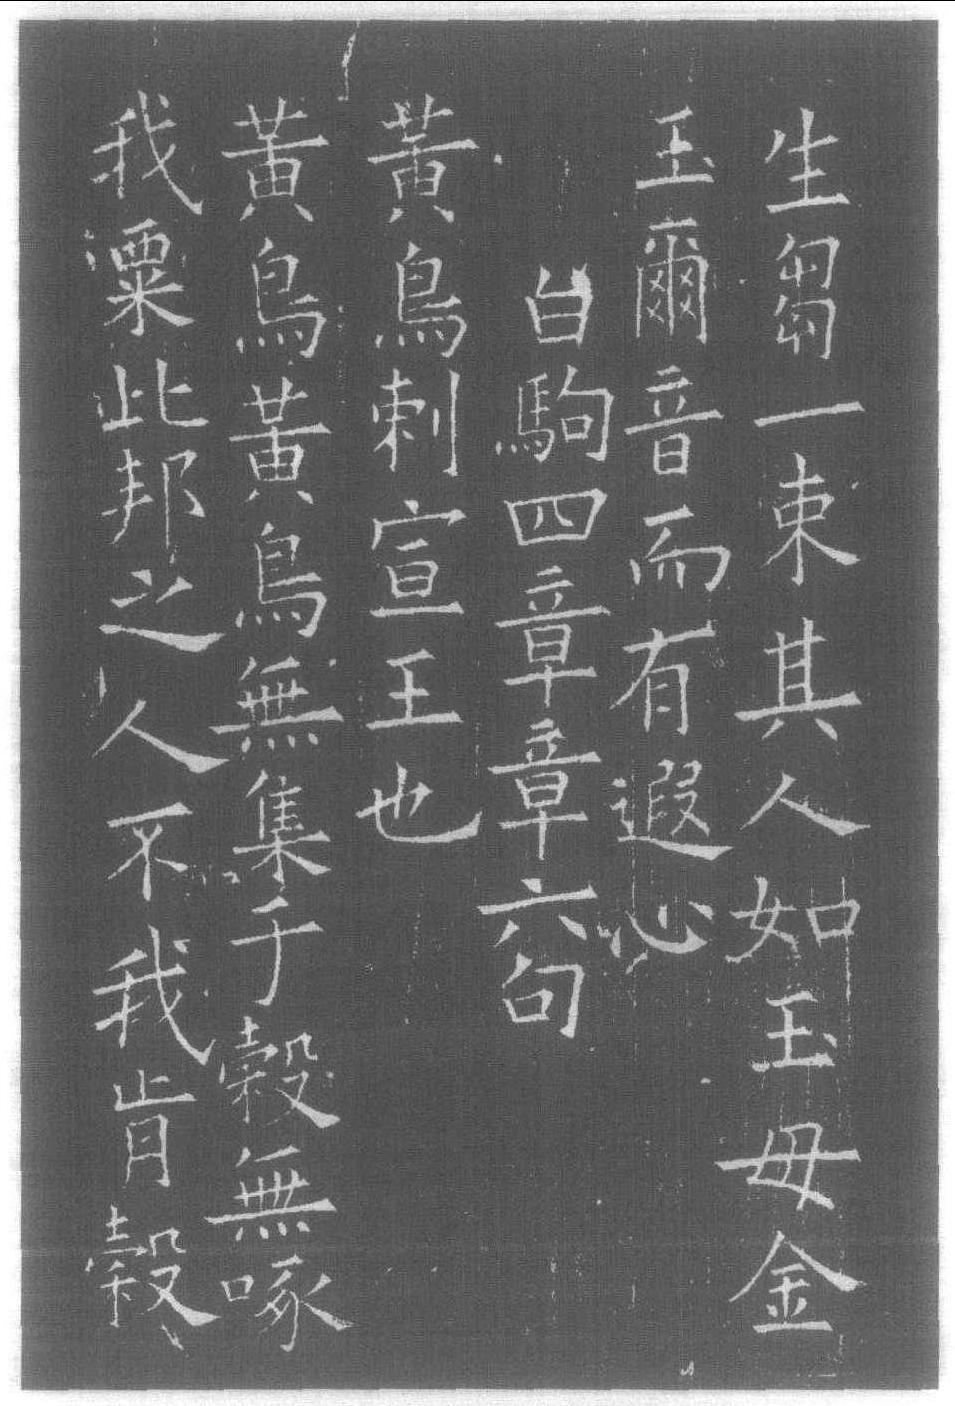 生芻一束其人如玉毋金
玉爾音而有遐心
白駒四章章六句
黃鳥刺宣王也
黃鳥黃鳥無集于榖無啄
我粟此邦之人不我肯榖